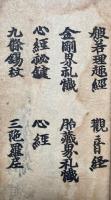 般若理趣經 觀音經
金剛界礼懺 胎蔵界礼懺
心經秘鍵 心經
九條錫杖 三陀羅尼